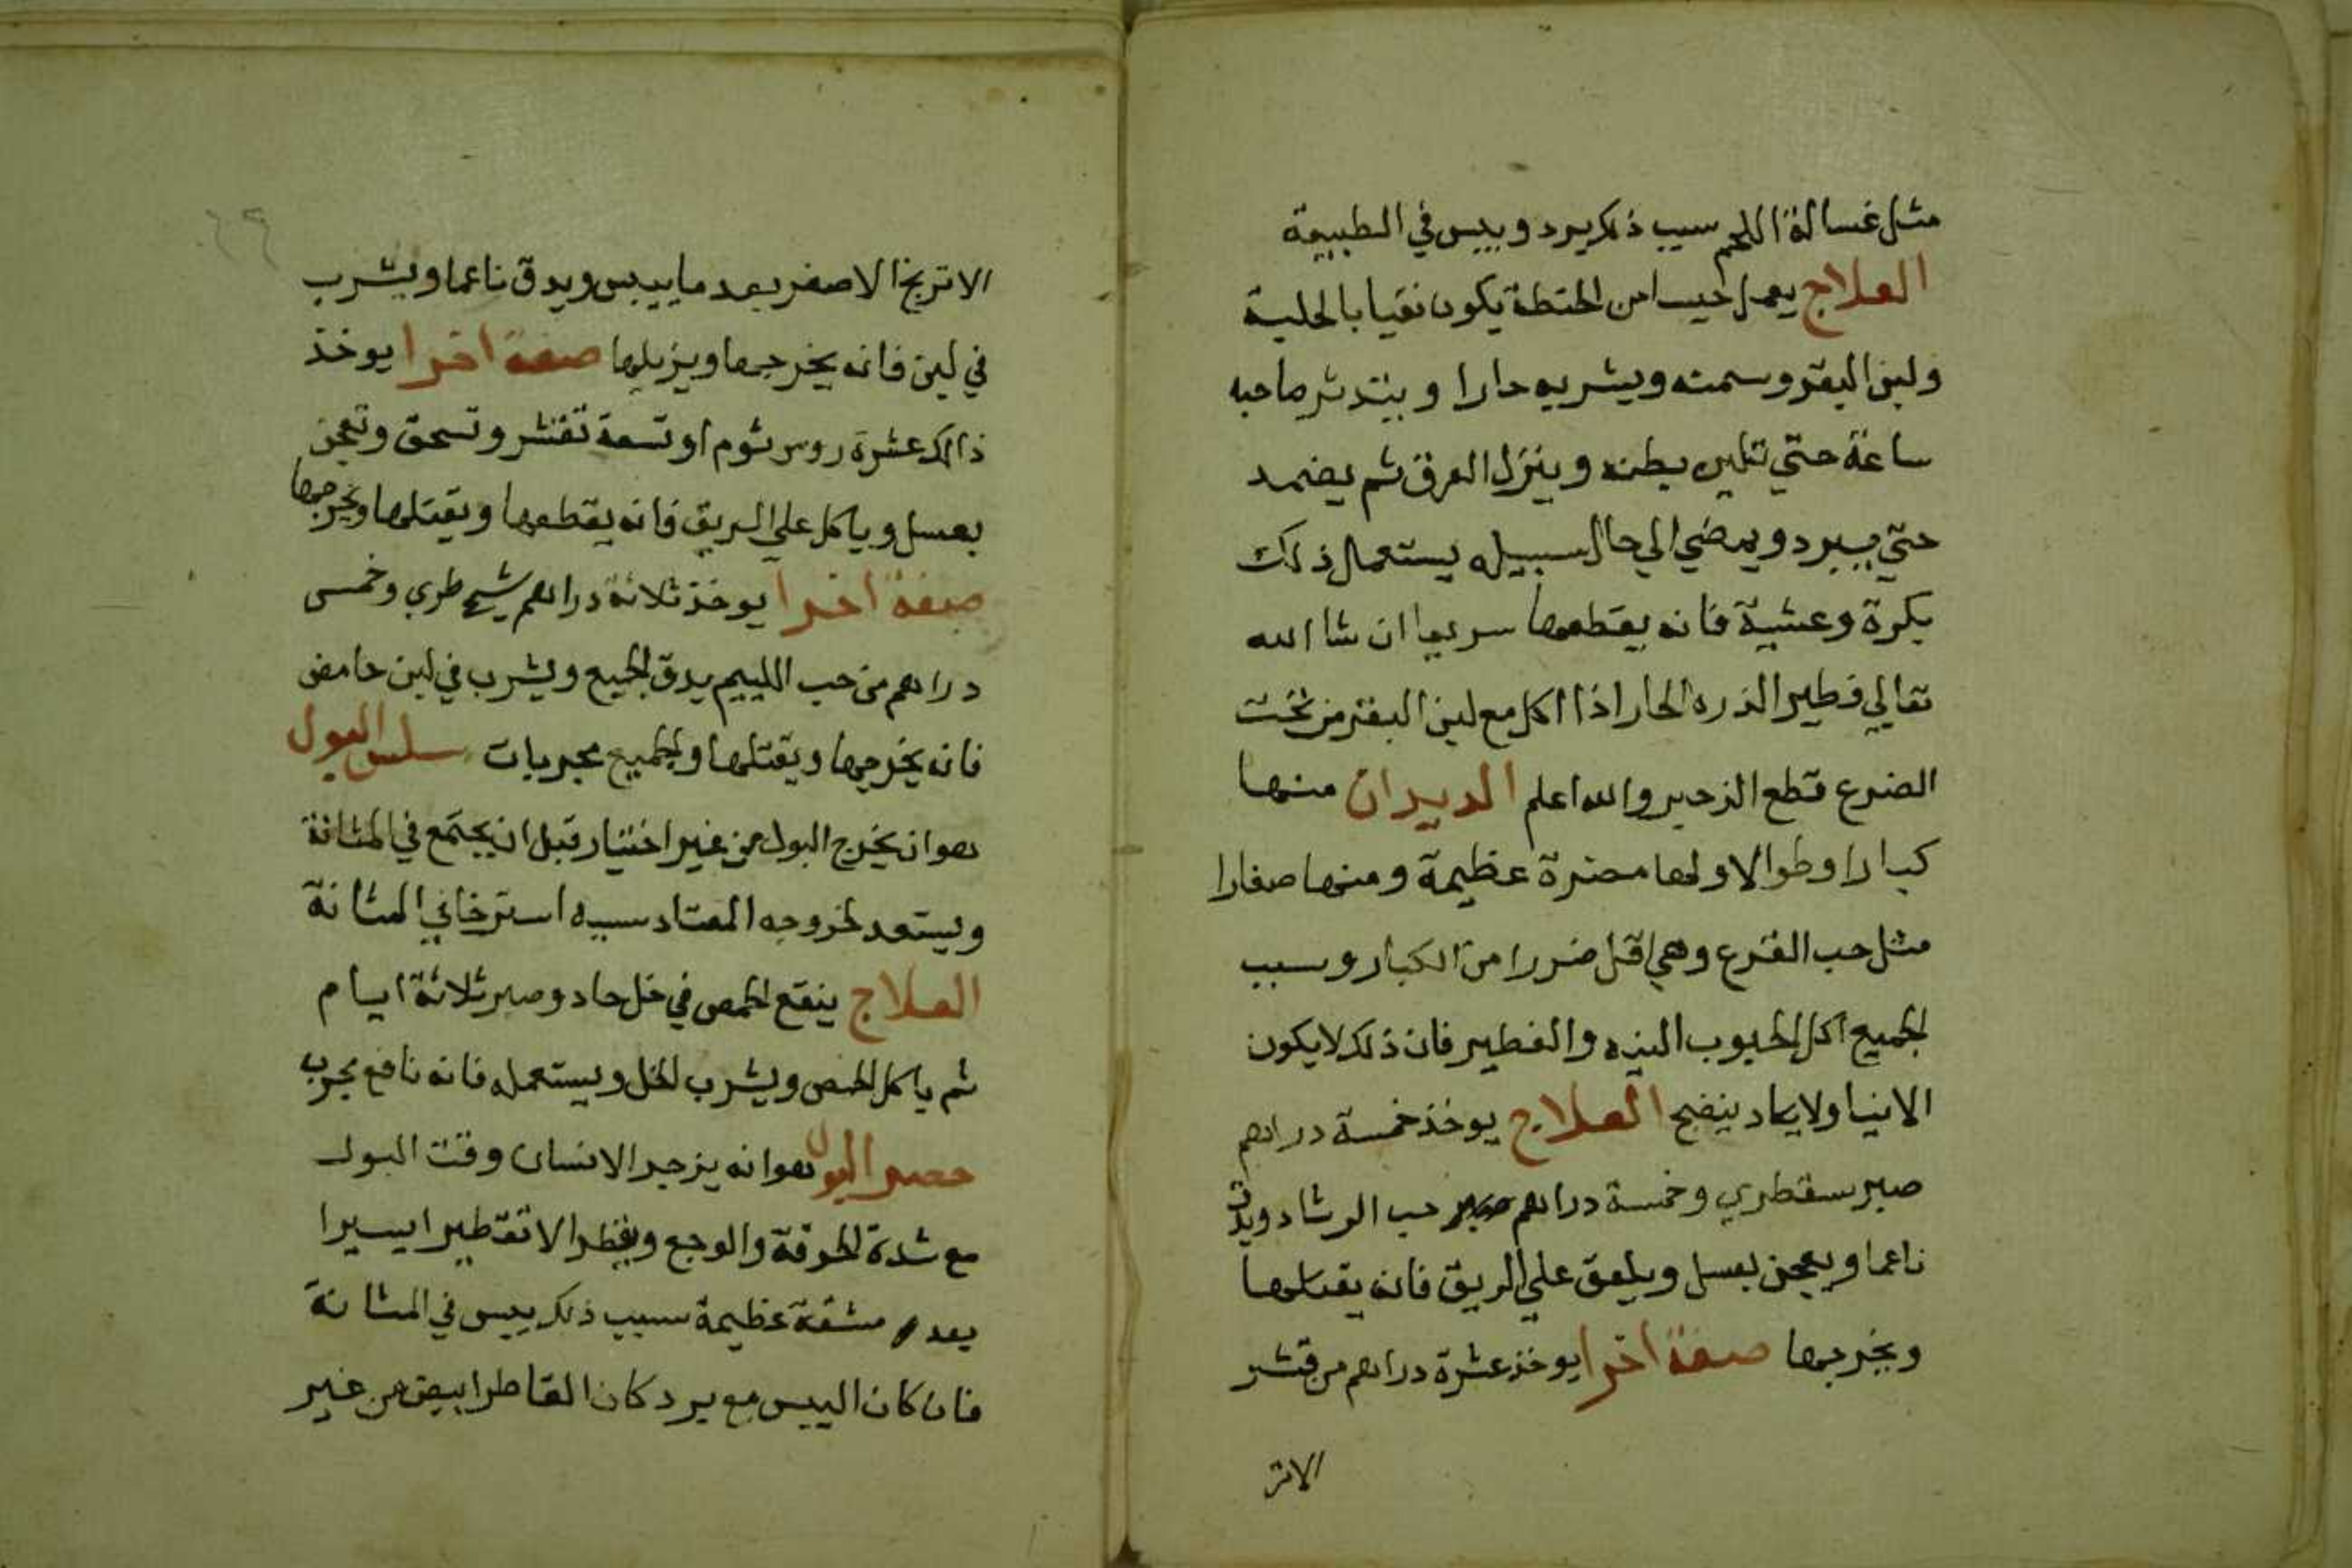 مثل غسالة اللحم سبب ذلك برد ويبس في الطبيعة
العلاج يعمل حيسا من الحنطة يكون نقيا بالحلبة
ولبن البقر وسمنه ويشربه حارا ويتدثر صاحبه
ساعة حتي تلين بطنه وينزل العرق ثم يضمد
حتي يبرد ويمضي الي حال سبيله يستعمال ذلك
بكرة وعشية فانه يقطعها سريعا ان شا الله
تعالي فطير الذره الحار اذا اكل مع لبن البقر من تحت
الضرع قطع الزحير والله اعلم الديدان منها
كبارا وطوالا ولها مضرة عظيمة ومنها صغارا
مثل حب القرع وهي اقل ضررا من الكبار وسبب
الجميع اكل الحبوب النيه والفطير فان ذلك لا يكون
الا نيا ولا يكاد ينضج العلاج يوخذ خمسة دراهم
صبر سقطري وخمسة دراهم حب الرشاد ويدق
ناعما ويعجن بعسل ويلعق علي الريق فانه يقتلها
ويخرجها صفة اخرا يوخذ عشرة دراهم من قشر
الاتر
٦٩
الاترنج الاصفر بعد ما ييبس ويدق ناعما ويشرب
في لبن فانه يخرجها ويزيلها صفة اخرا يوخذ
ذالك عشرة روس ثوم او تسعة تقشر وتسحق وتعجن
بعسل وياكل علي الريق فانه يقطعها ويقتلها ويخرجها
صفة اخرا يوخذ ثلاثة دراهم شيح طري وخمس
دراهم من حب يدق الجميع ويشرب في لبن حامض
فانه يخرجها ويقتلها والجميع مجربات سلس البول
هو ان يخرج البول من غير اختيار قبل ان يجتمع في المثانة
ويستعد لخروجه المعتاد سببه استرخا في المثانة
العلاج ينقع الحمص في خل حاد وصبر ثلاثة ايام
ثم ياكل الحمص ويشرب الخل ويستعمله فانه نافع مجرب
حصر البول هو انه يزجر الانسان وقت البول
مع شدة الحرقة والوجع ويقطر الا تقطيرا يسيرا
بعد مشقة عظيمة سبب ذلك يبس في المثانة
فان كان اليبس مع برد كان القاطر ابيض من غير